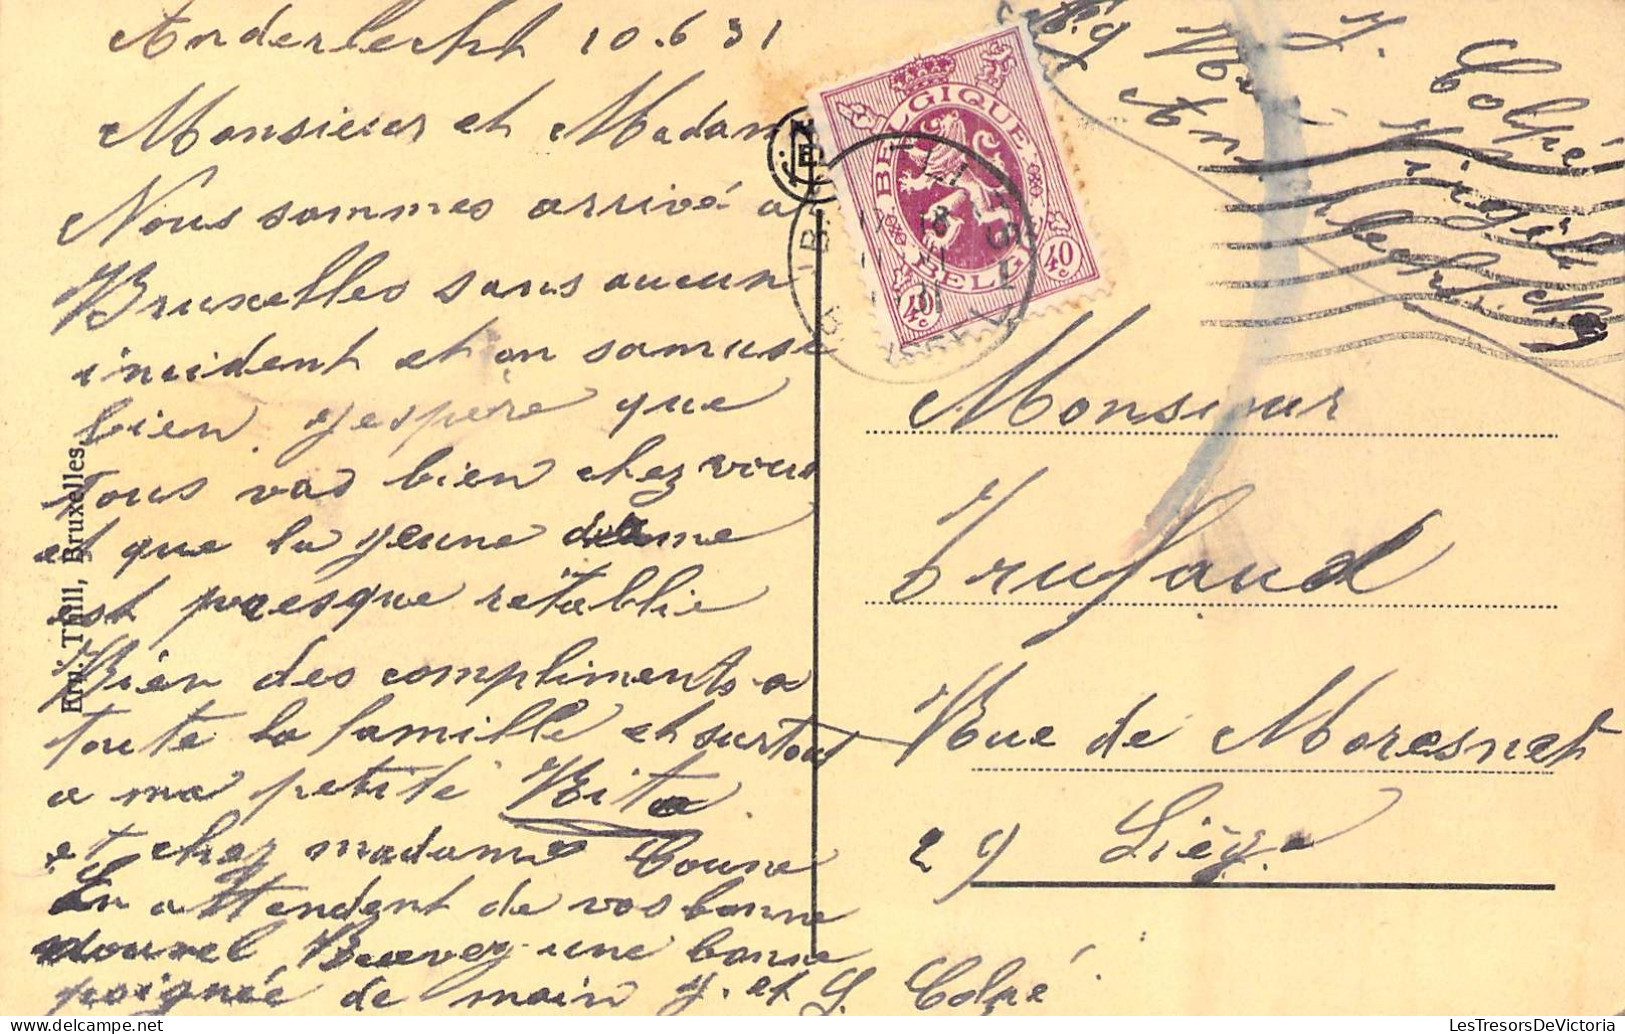 Anderlecht 10.6 31
Monsieur et Madam
Nous sommes arrivé a
Bruxelles sans aucun
insident et on samuse
bien. j'espère que
tous vas bien chez vous
et que la jeune dame
est presque rétablie
Bién des compliments a
toute la famille et surtout
a ma petite Rita
et chez madame Coune
En attendent de vos bonne
nouvel Recevez une bonne
poignée de main J. et J. Colpé
Ern. Thill, Bruxelles
E
BELGIQUE
BELGIE
40 c
40 c
J. Colpé
Anderlecht
Monsieur
Trufaud
Rue de Moresnet
29 Liége
LesTresorsDeVictoria